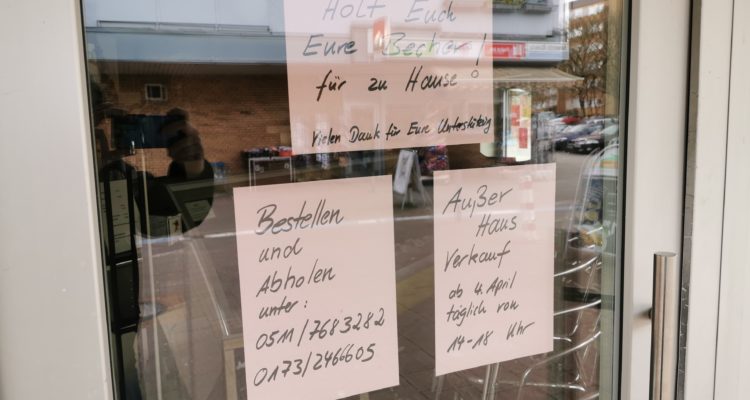 Holt Euch
Eure Becher!
für zu Hause!
Vielen Dank für Eure Unterstützung
Bestellen
und
Abholen
unter:
0511/7683282
0173/2466605
Außer
Haus
Verkauf
ab 4. April
täglich von
14-18 Uhr